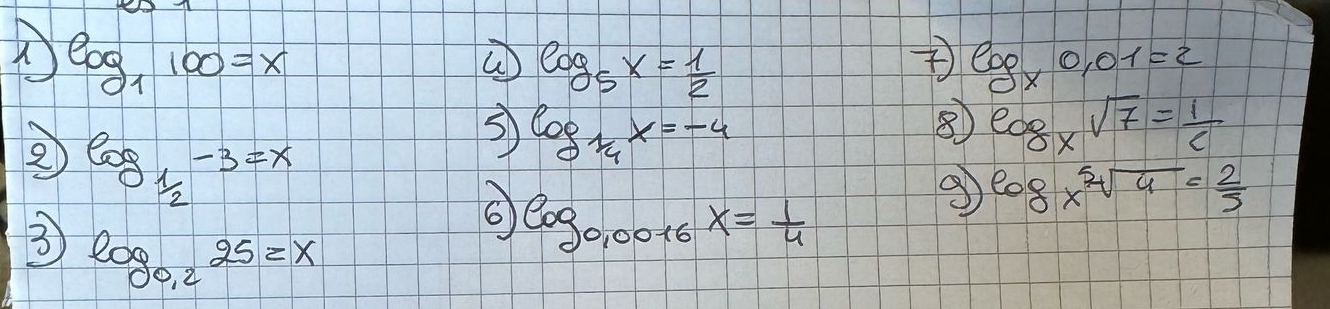 1) log₁ 100 = x
2) log_½ -3 = x
3) log₀,₂ 25 = x
4) log₅ x = 1/2
5) log_¼ x = -4
6) log₀,₀₀₁₆ x = 1/4
7) logₓ 0,01 = 2
8) logₓ √7 = 1/2
9) logₓ ⁵√4 = 2/5